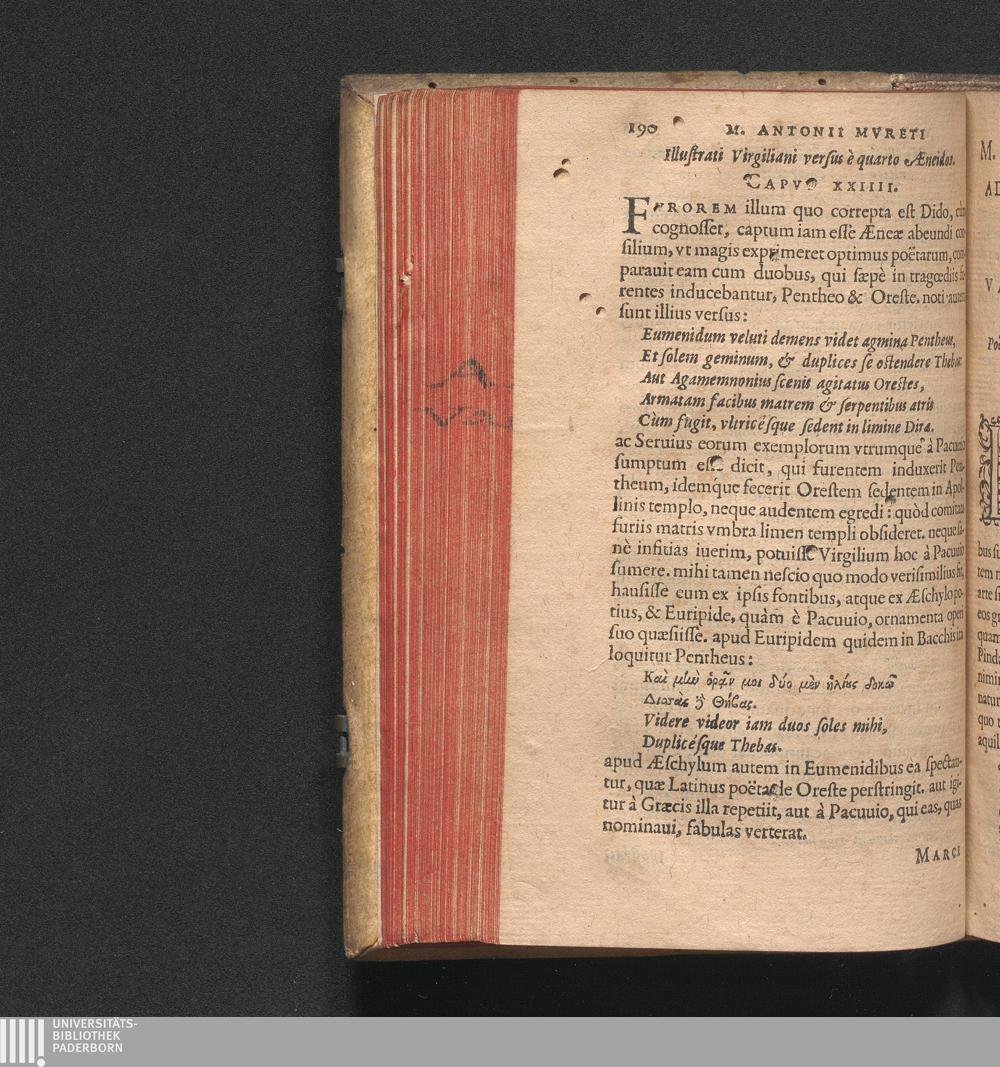 190 M. ANTONII MVRETI
Illuſtrati Virgiliani verſus è quarto Æneidos.
CAPVT XXIIII.
FVROREM illum quo correpta eſt Dido, cùm
cognoſſet, captum iam eſſe Æneæ abeundi con
ſilium, vt magis exprimeret optimus poëtarum, com
parauit eam cum duobus, qui ſæpè in tragœdiis fu
rentes inducebantur, Pentheo & Oreſte. noti autem
ſunt illius verſus:
Eumenidum veluti demens videt agmina Pentheus,
Et ſolem geminum, & duplices ſe oſtendere Thebas:
Aut Agamemnonius ſcenis agitatus Oreſtes,
Armatam facibus matrem & ſerpentibus atris
Cùm fugit, vltricéſque ſedent in limine Diræ.
ac Seruius eorum exemplorum vtrumque à Pacuuio
ſumptum eſſe dicit, qui furentem induxerit Pen-
theum, idemque fecerit Oreſtem ſedentem in Apol-
linis templo, neque audentem egredi: quòd comitata
furiis matris vmbra limen templi obſideret. neque ſa-
nè infitias iuerim, potuiſſe Virgilium hoc à Pacuuio
ſumere. mihi tamen neſcio quo modo veriſimilius fit,
hauſiſſe eum ex ipſis fontibus, atque ex Æſchylo po-
tius, & Euripide, quàm è Pacuuio, ornamenta operi
ſuo quæſiiſſe. apud Euripidem quidem in Bacchis ita
loquitur Pentheus:
Καὶ μὴν ὁρᾷν μοι δύο μὲν ἡλίους δοκῶ
Δισσὰς δὲ Θήβας.
Videre videor iam duos ſoles mihi,
Duplicéſque Thebas.
apud Æſchylum autem in Eumenidibus ea ſpectan-
tur, quæ Latinus poëta de Oreſte perſtringit. aut igi-
tur à Græcis illa repetiit, aut à Pacuuio, qui eas, quas
nominaui, fabulas verterat.
MARCI
M.
V A
bus
tem
arte
quam
Pinda
nimi
natur
quo
aquil
UNIVERSITÄTS-
BIBLIOTHEK
PADERBORN